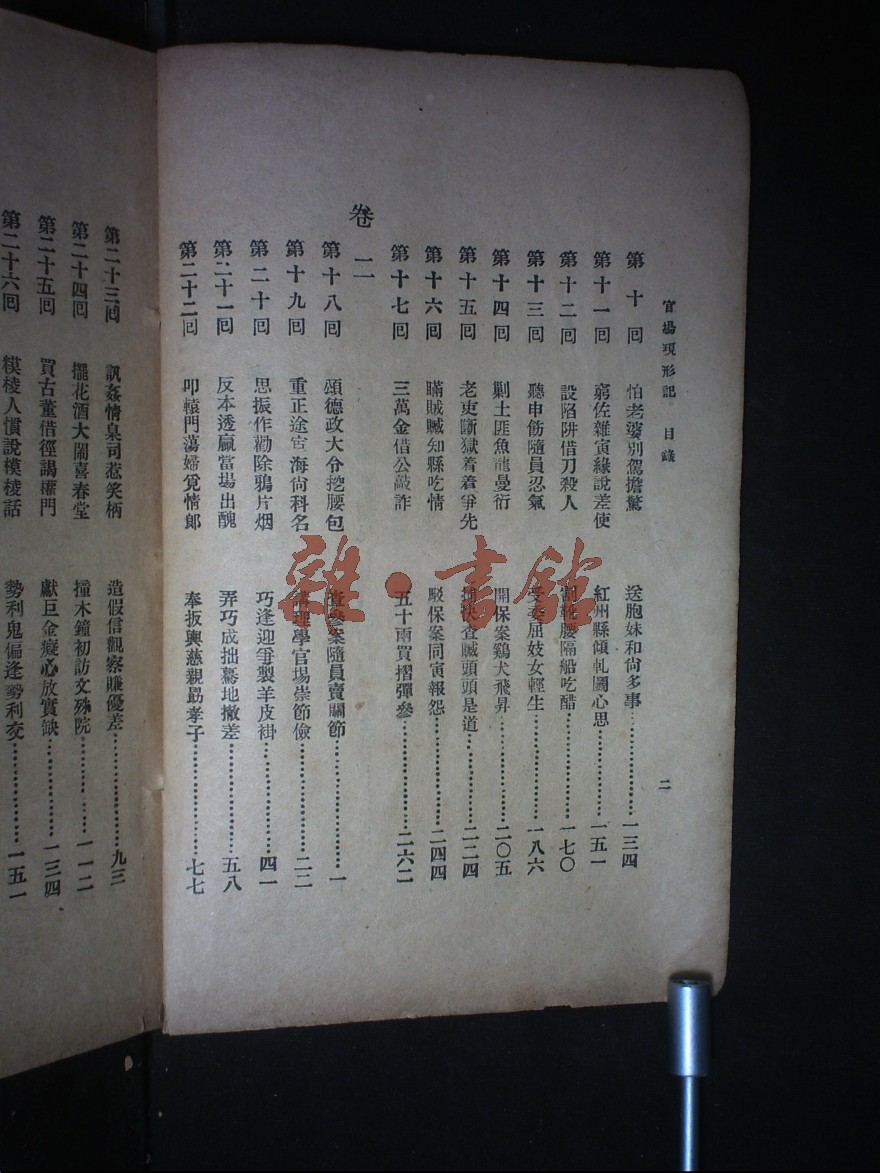 官場現形記　目錄　二
第十回　怕老婆別駕擔驚　送胞妹和尙多事……………一三四
第十一回　窮佐雜夤緣說差使　紅州縣傾軋圖心思……………一五一
第十二回　設陷阱借刀殺人　割靴腰隔船吃醋……………一七〇
第十三回　聽申飭隨員忍氣　受委屈妓女輕生……………一八六
第十四回　剿土匪魚龍曼衍　開保案鷄犬飛昇……………二〇五
第十五回　老吏斷獄着着爭先　捕快查贓頭頭是道……………二二四
第十六回　瞞賊贓知縣吃情　駁保案同寅報怨……………二四四
第十七回　三萬金借公敲詐　五十兩買摺彈參……………二六二
卷二
第十八回　頌德政大令挖腰包　查參案隨員賣關節……………一
第十九回　重正途宦海尙科名　講理學官場崇節儉……………二二
第二十回　思振作勸除鴉片烟　巧逢迎爭製羊皮褂……………四一
第二十一回　反本透贏當場出醜　弄巧成拙驀地撤差……………五八
第二十二回　叩轅門蕩婦覓情郎　奉板輿慈親勗孝子……………七七
第二十三回　訊姦情臬司惹笑柄　造假信觀察賺優差……………九三
第二十四回　擺花酒大鬧喜春堂　撞木鐘初訪文殊院……………一一二
第二十五回　買古董借徑謁權門　獻巨金癡心放實缺……………一三四
第二十六回　模棱人慣說模棱話　勢利鬼偏逢勢利交……………一五一
雜·書館